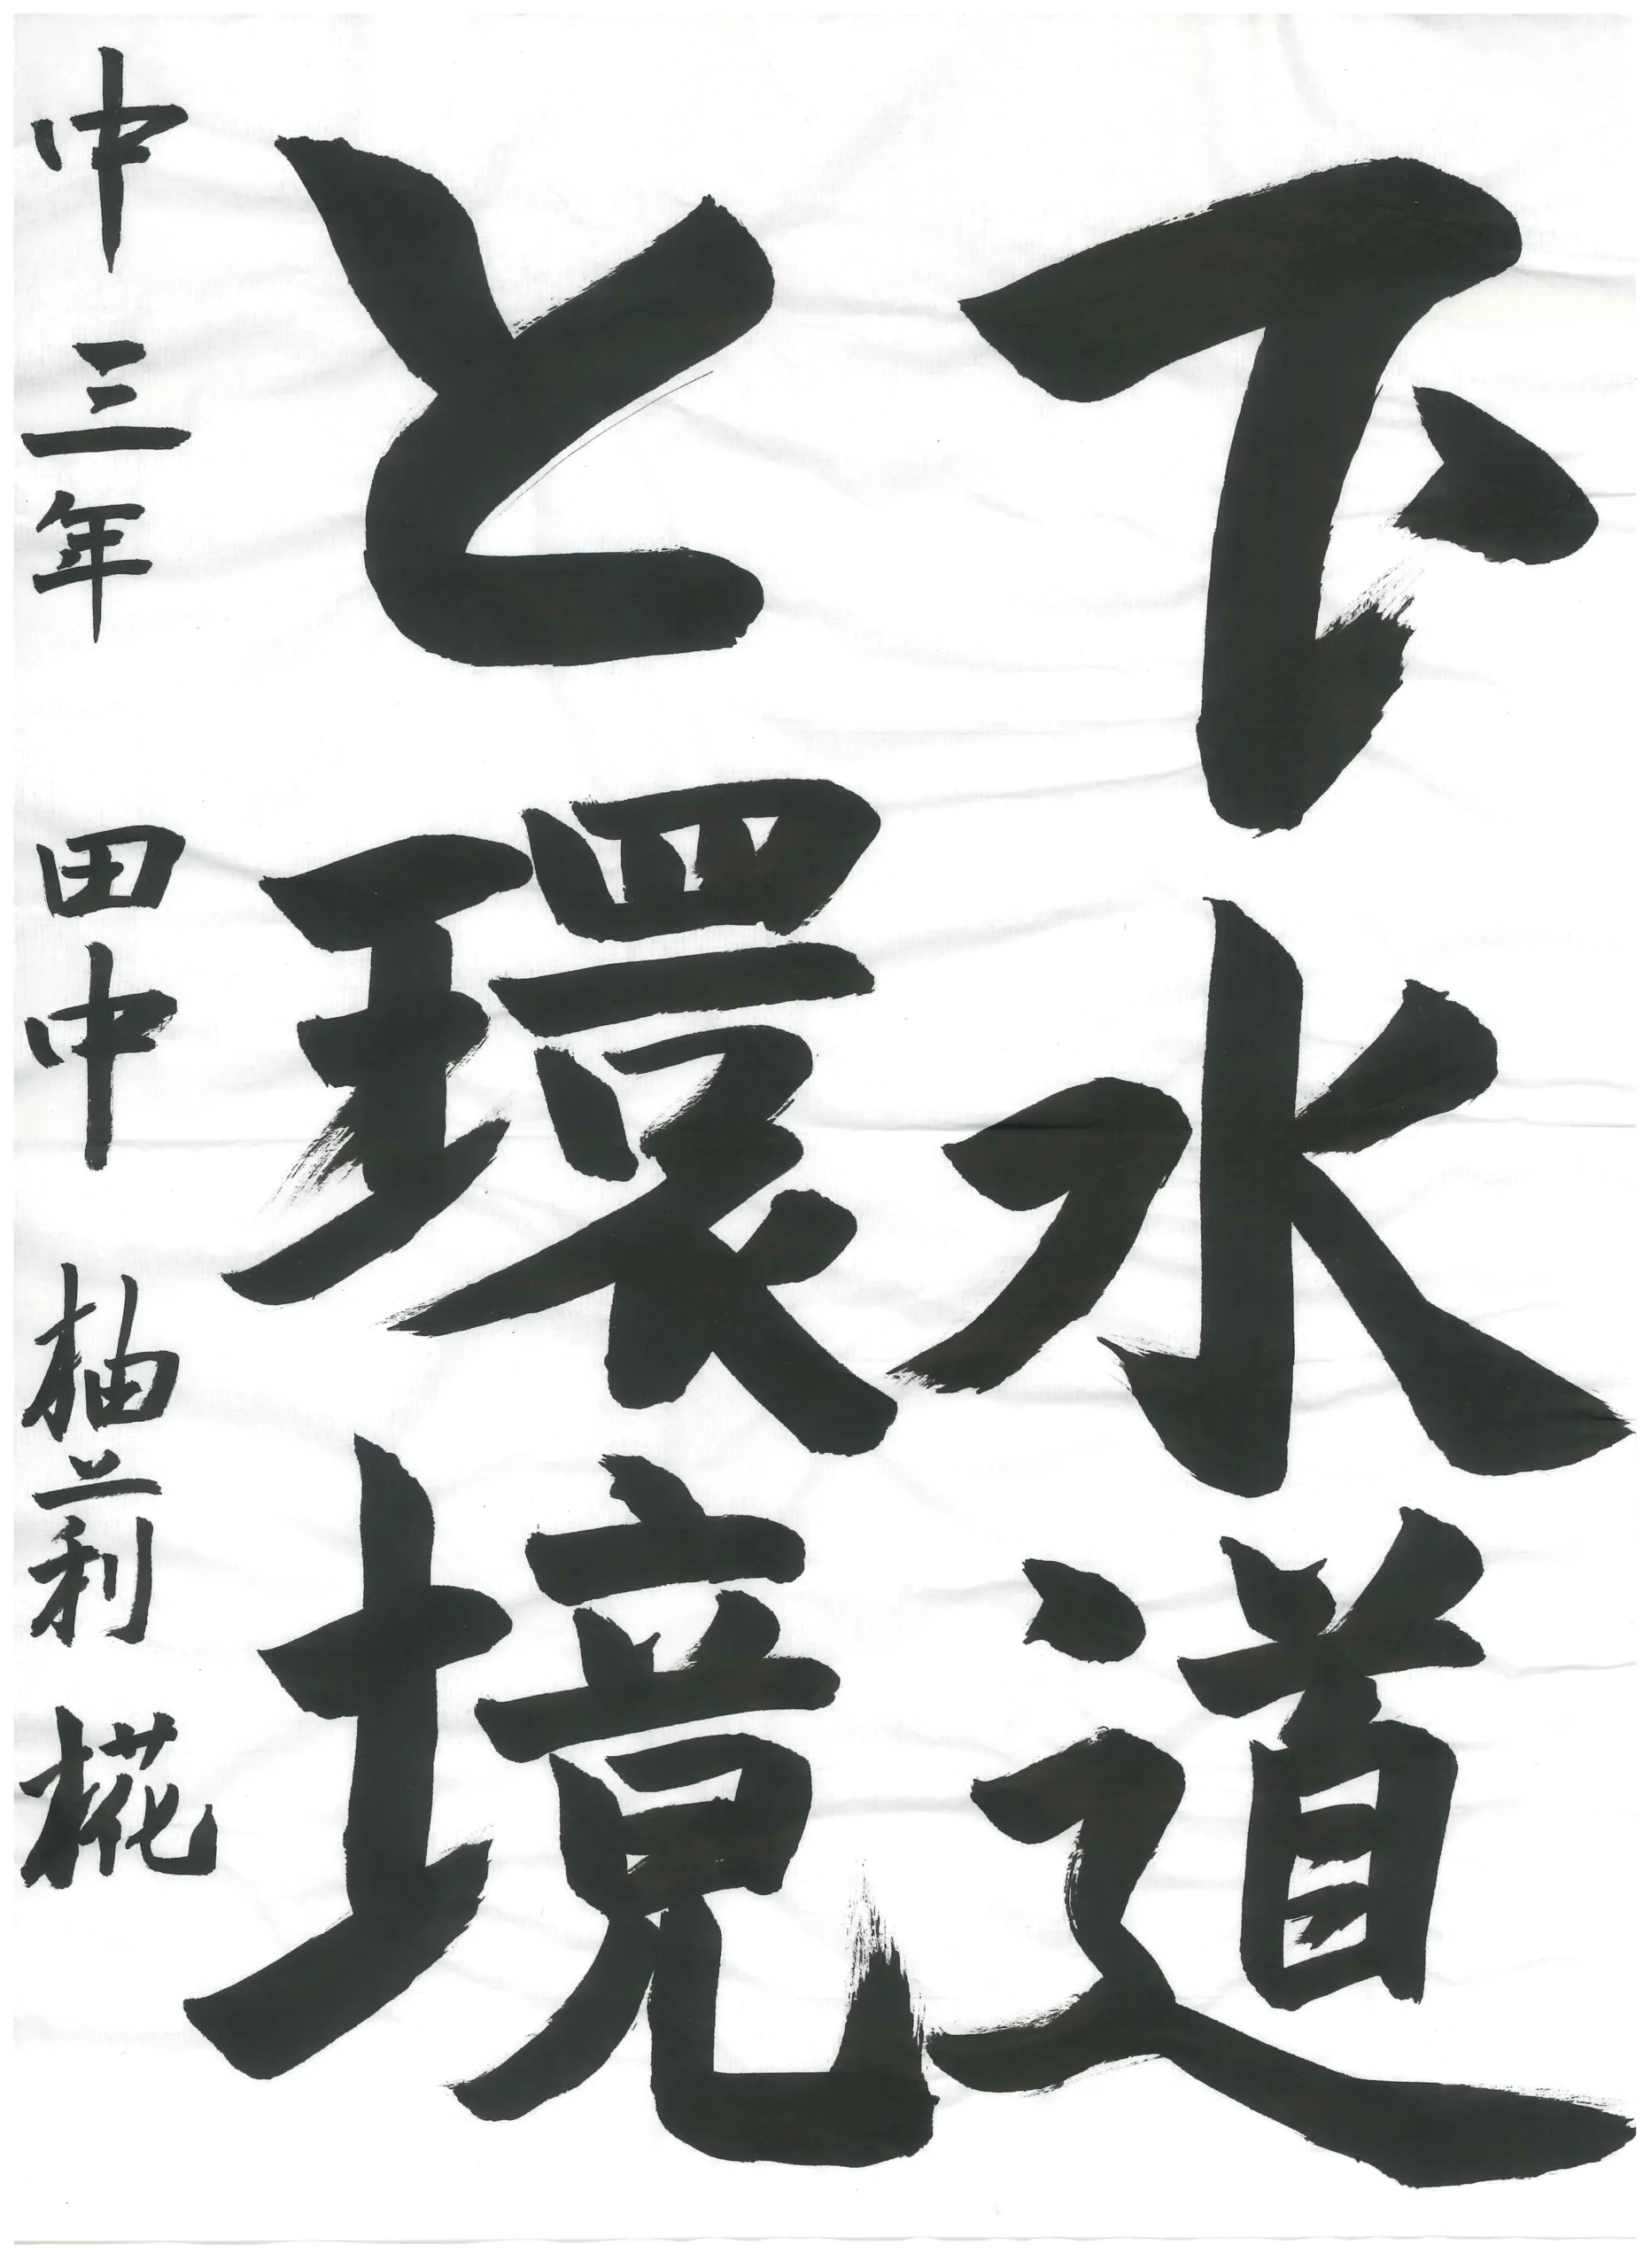 下水道
と環境
中三年 田中 柚莉椛